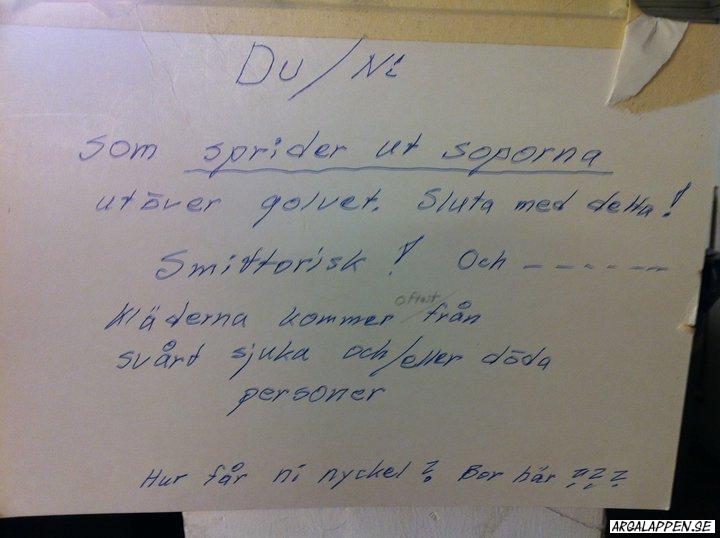 Du/Ni
som sprider ut soporna
utöver golvet. Sluta med detta!
Smittorisk! Och -------
oftast
Kläderna kommer från
svårt sjuka och/eller döda
personer
Hur får ni nyckel? Bor här???
ARGALAPPEN.SE